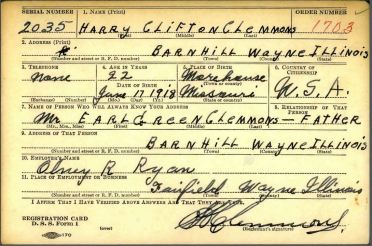 SERIAL NUMBER 1. NAME (Print) ORDER NUMBER
2035 HARRY CLIFTON CLEMMONS 1703
(First) (Middle) (Last)
2. ADDRESS (Print)
BARNHILL WAYNE ILLINOIS
(Number and street or R. F. D. number) (Town) (County) (State)
3. TELEPHONE 4. AGE IN YEARS 5. PLACE OF BIRTH 6. COUNTRY OF CITIZENSHIP
None 22 Morehouse
DATE OF BIRTH (Town or county)
June 17 1918 Missouri U.S.A.
(Exchange) (Number) (Mo.) (Day) (Yr.) (State or country)
7. NAME OF PERSON WHO WILL ALWAYS KNOW YOUR ADDRESS 8. RELATIONSHIP OF THAT PERSON
Mr EARL GREEN CLEMMONS — FATHER
(Mr., Mrs., Miss) (First) (Middle) (Last)
9. ADDRESS OF THAT PERSON
BARNHILL WAYNE ILLINOIS
(Number and street or R. F. D. number) (Town) (County) (State)
10. EMPLOYER'S NAME
Olney R Ryan
11. PLACE OF EMPLOYMENT OR BUSINESS
Fairfield Wayne Illinois
(Number and street or R. F. D. number) (Town) (County) (State)
I AFFIRM THAT I HAVE VERIFIED ABOVE ANSWERS AND THAT THEY ARE TRUE.
REGISTRATION CARD
D. S. S. Form 1 (over) Clemmons
(Registrant's signature)